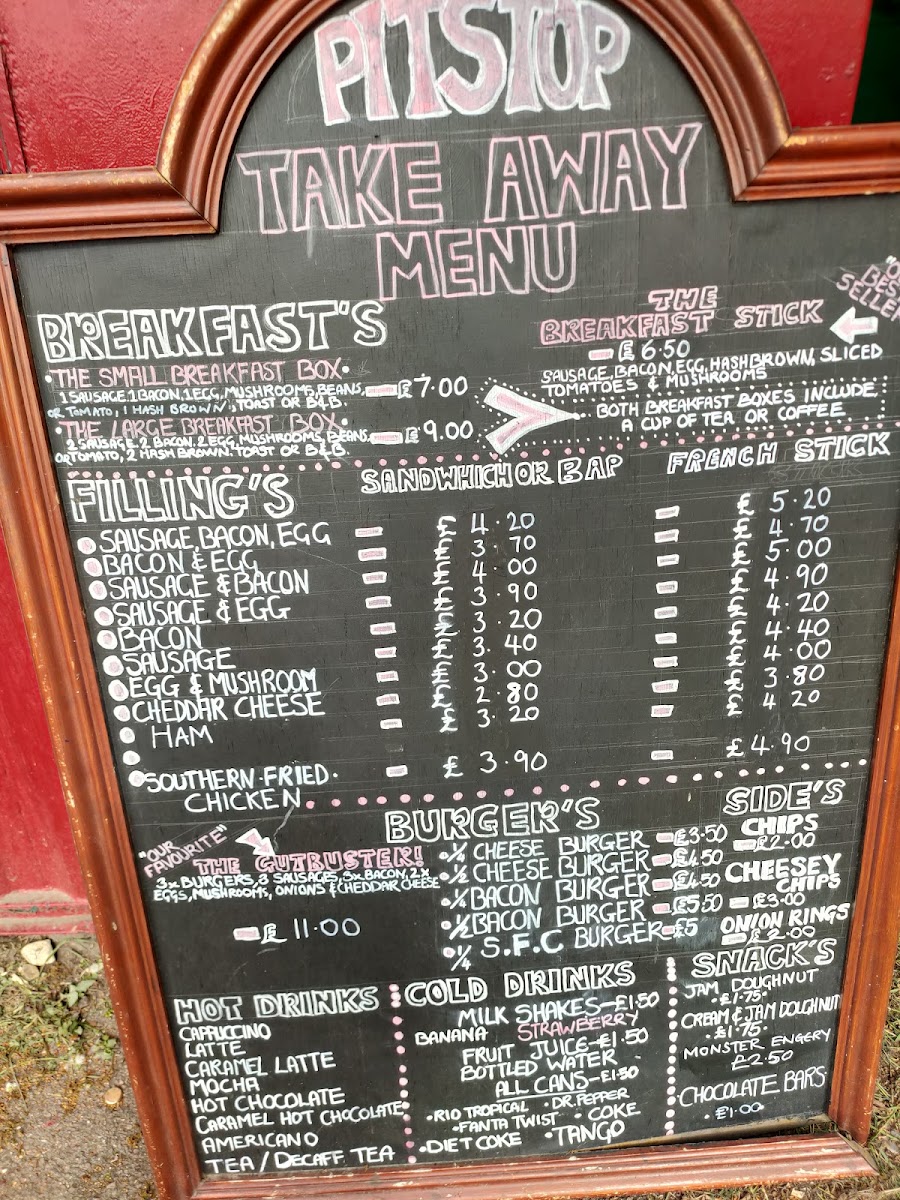 PITSTOP
TAKE AWAY
MENU
BREAKFAST'S
•THE SMALL BREAKFAST BOX•
1 SAUSAGE, 1 BACON, 1 EGG, MUSHROOMS, BEANS, - £7.00
OR TOMATO, 1 HASH BROWN, TOAST OR B&B.
•THE LARGE BREAKFAST BOX•
2 SAUSAGE, 2 BACON, 2 EGG, MUSHROOMS, BEANS, - £9.00
OR TOMATO, 2 HASH BROWN. TOAST OR B&B.
BEST
SELLER
THE
BREAKFAST STICK
- £6.50
SAUSAGE, BACON, EGG, HASHBROWN, SLICED
TOMATOES & MUSHROOMS
BOTH BREAKFAST BOXES INCLUDE
A CUP OF TEA OR COFFEE
FILLING'S SANDWHICH OR BAP FRENCH STICK
SAUSAGE, BACON, EGG - £4.20 - £5.20
BACON & EGG - £3.70 - £4.70
SAUSAGE & BACON - £4.00 - £5.00
SAUSAGE & EGG - £3.90 - £4.90
BACON - £3.20 - £4.20
SAUSAGE - £3.40 - £4.40
EGG & MUSHROOM - £3.00 - £4.00
CHEDDAR CHEESE - £2.80 - £3.80
HAM - £3.20 - £4.20
SOUTHERN•FRIED• £3.90 - £4.90
CHICKEN
"OUR
FAVOURITE"
THE GUTBUSTER!
3x BURGERS, 3 SAUSAGES, 3x BACON, 2x
EGGS, MUSHROOMS, ONIONS & CHEDDAR CHEESE
- £11.00
BURGER'S
•¼ CHEESE BURGER - £3.50
•½ CHEESE BURGER - £4.50
•¼ BACON BURGER - £4.50
•½ BACON BURGER - £5.50
•¼ S.F.C BURGER - £5
SIDE'S
CHIPS
- £2.00
CHEESEY
CHIPS
- £3.00
ONION RINGS
- £2.00
HOT DRINKS
CAPPUCCINO
LATTE
CARAMEL LATTE
MOCHA
HOT CHOCOLATE
CARAMEL HOT CHOCOLATE
AMERICANO
TEA / DECAFF TEA
COLD DRINKS
MILK SHAKES-£1.50
BANANA STRAWBERRY
FRUIT JUICE-£1.50
BOTTLED WATER
ALL CANS-£1.50
•RIO TROPICAL •DR.PEPPER
•FANTA TWIST •COKE
•DIET COKE •TANGO
SNACK'S
JAM DOUGHNUT
•£1.75•
CREAM & JAM DOUGHNUT
•£1.75•
MONSTER ENGERY
£2.50
CHOCOLATE BARS
•£1.00